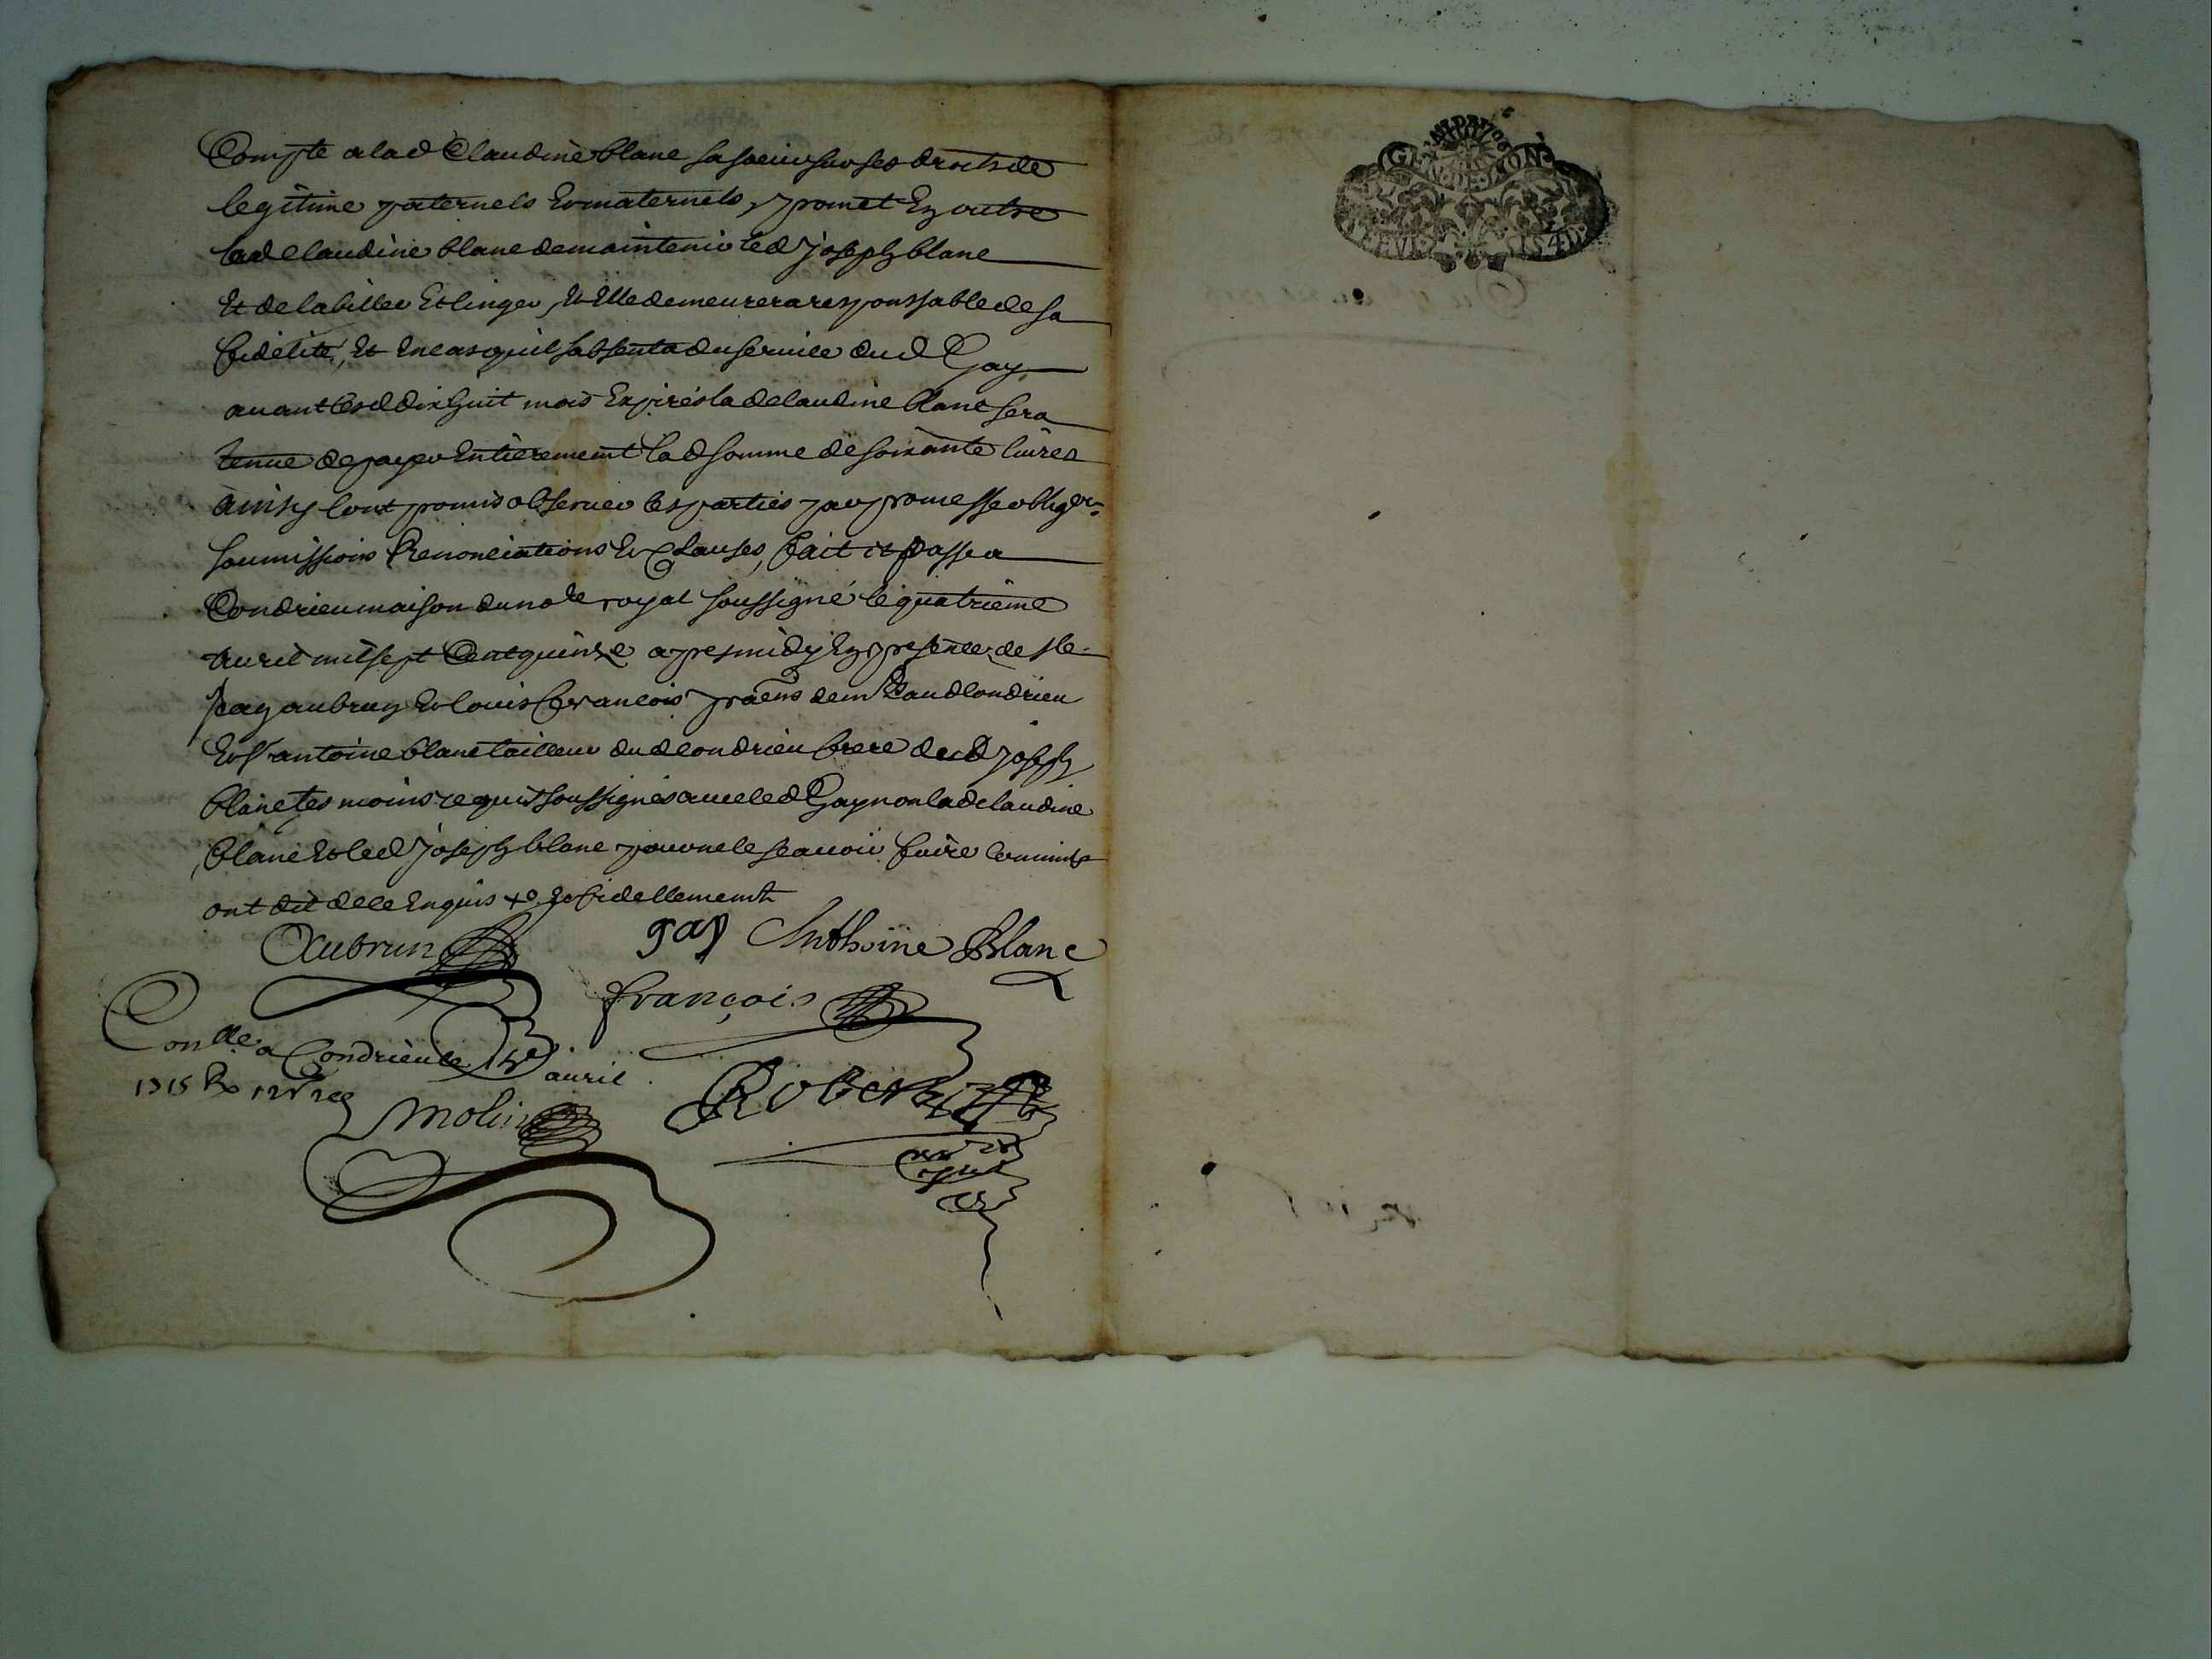 Compte a lad Claudine blanc sa soeur sur ses droits de
legitime paternels et maternels, promet en outre
lad Claudine blanc de maintenir led joseph blanc
Et de labiller Et linger, Et Elle demeurera responssable de sa
fidelité, Et en cas quil sabsenta du service dud Gay
avant lesd dix huit mois Expirés lad claudine blanc sera
tenue de payer Entierement lad somme de soixante livres
ainsy lont promis observer les parties par promesse oblig.on
soumissions Renonciations Et Clauses, fait et passe a
Condrieu maison du no.re royal soussigné le quatrieme
Avril mil sept Cent quinze apres midy En presence de
aubrun Et louis francois dem aud Condrieu
Et antoine blanc tailleur dud Condrieu frere dud joseph
blanc tesmoins requis soussignés avec led Gay non lad claudine
blanc Et led joseph blanc pour ne le scavoir faire comme
ont dit de ce Enquis Et fidellement
Aubrun
gay Anthoine Blanc
françois
Con.lle a Condrieu le avril
1715 R 12s
Molin
Robert
GN D LYON